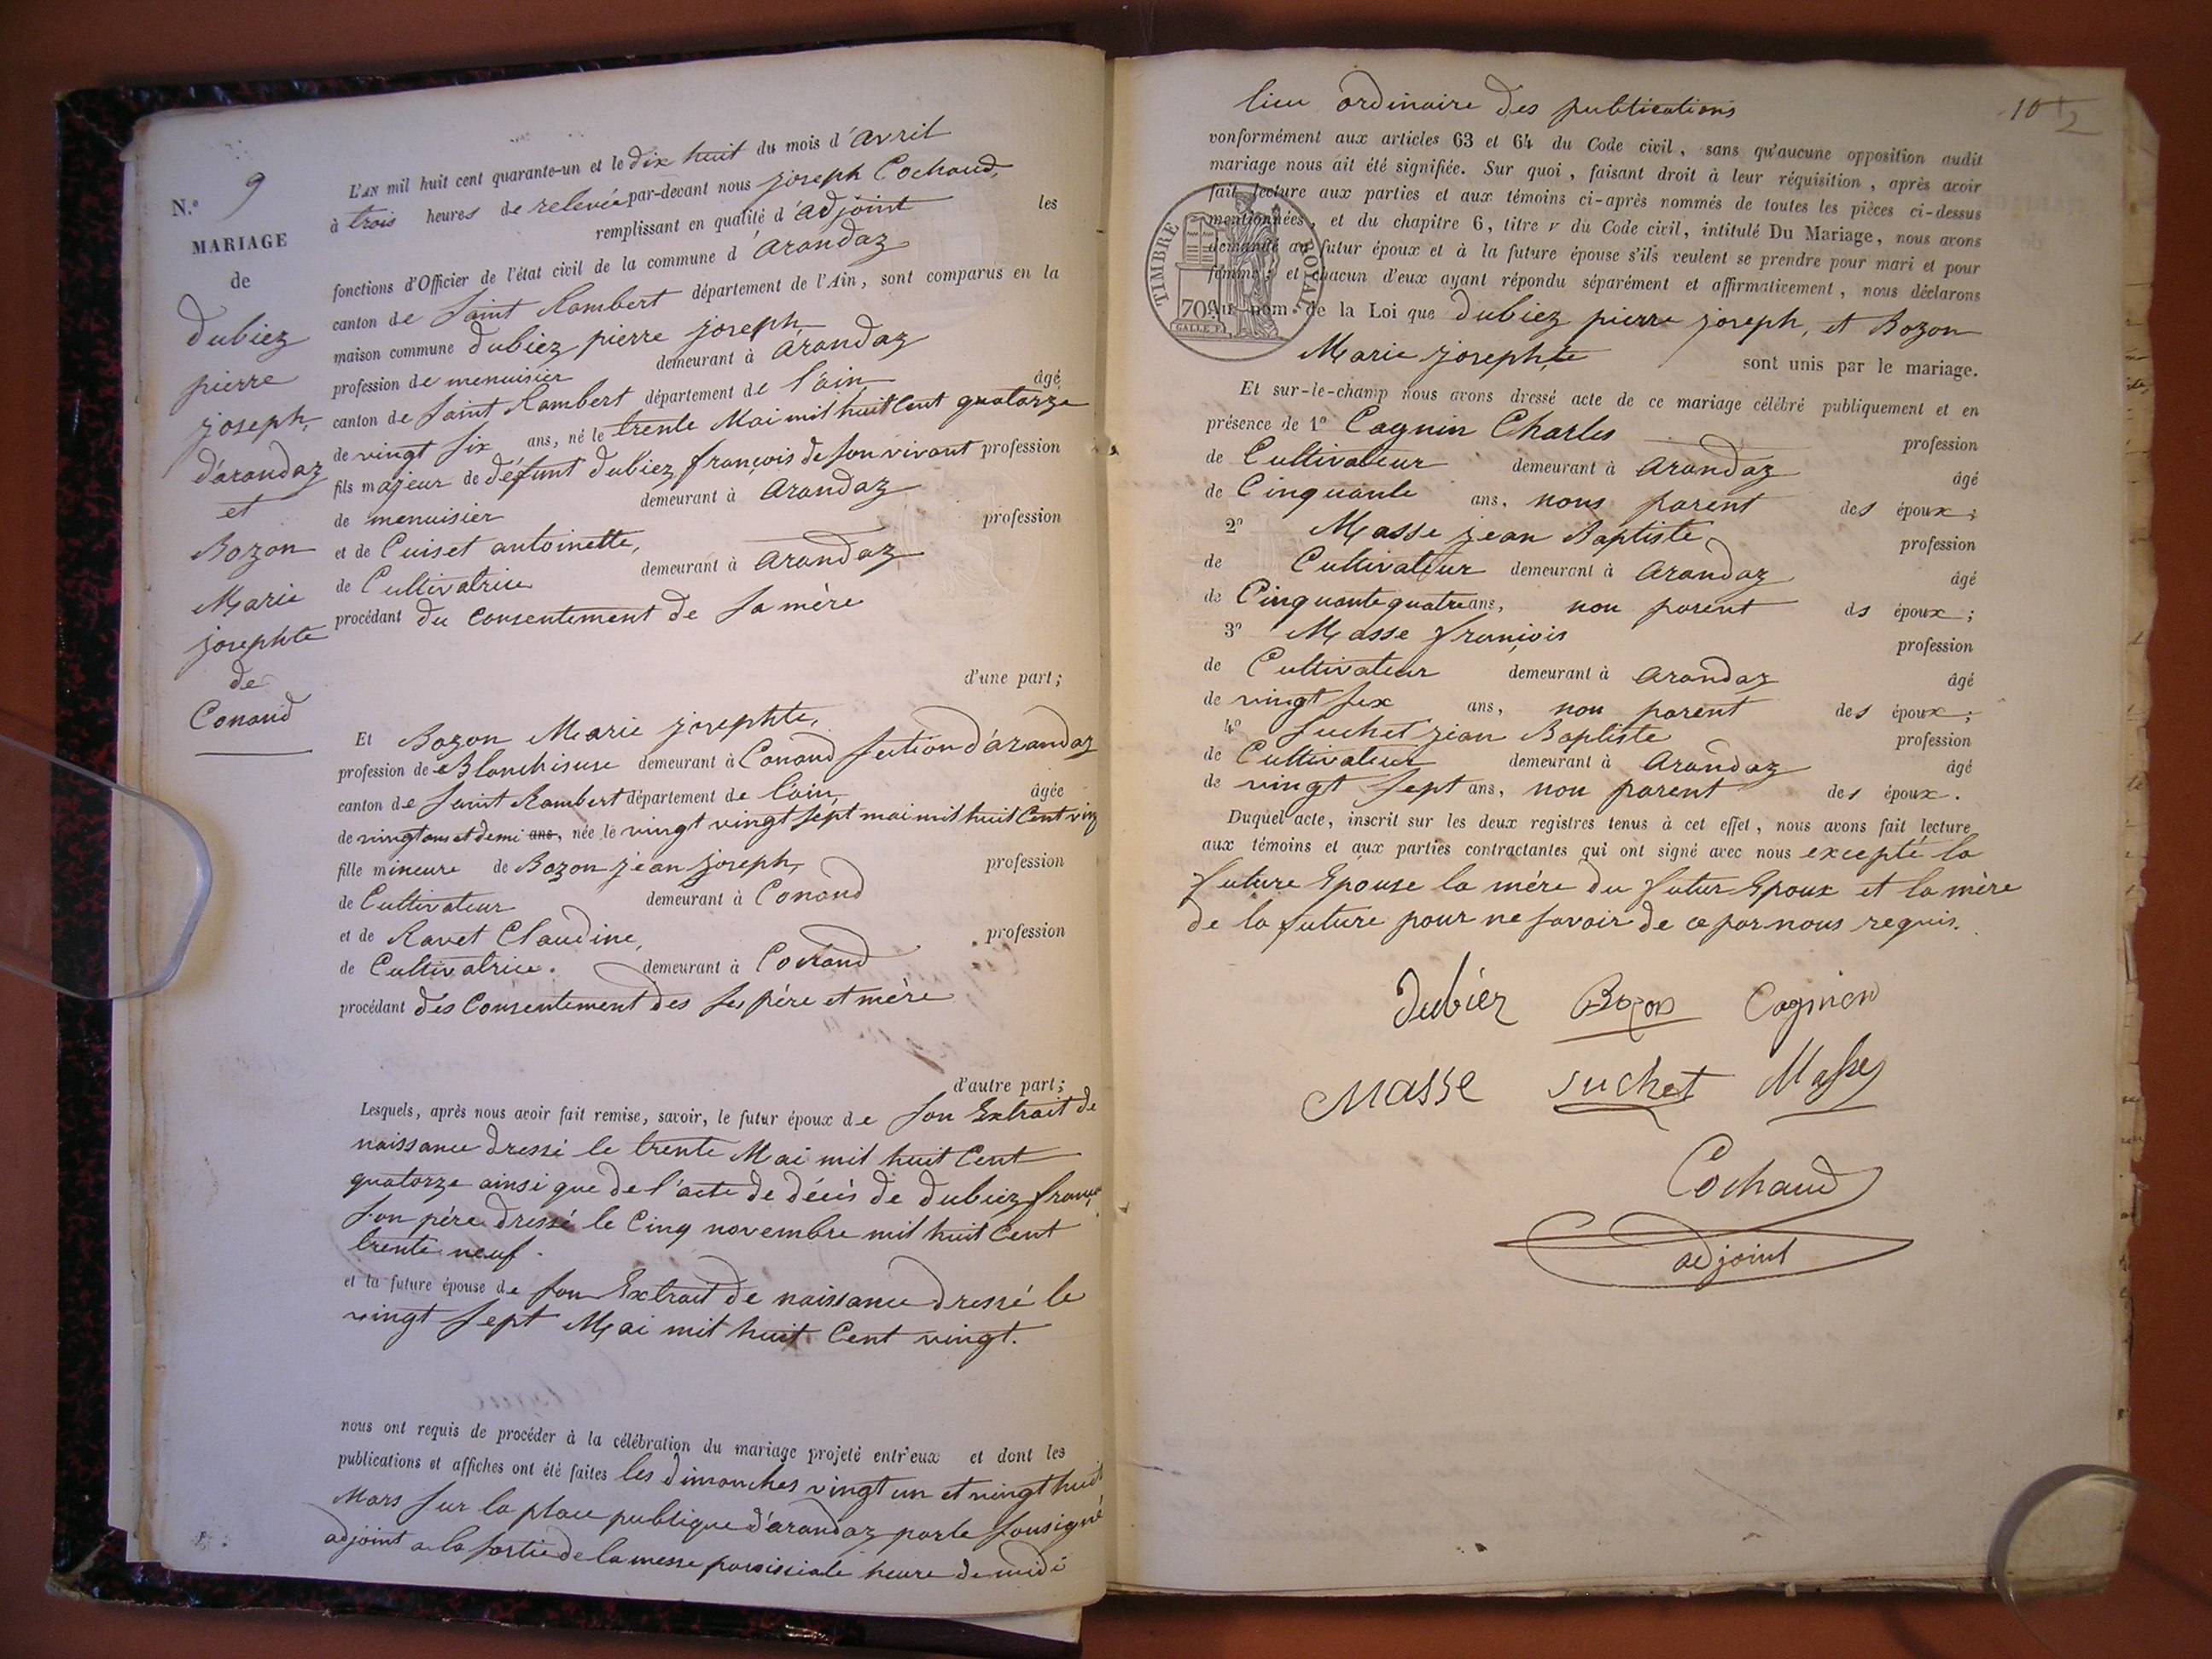 N.º 9
MARIAGE
de
Dubiez
pierre
joseph,
d'arandaz
et
Bozon
Marie
josephte
de
Conand
L'AN mil huit cent quarante-un et le dix huit du mois d'avril
à trois heures de relevée par-devant nous joseph Cochaud,
remplissant en qualité d'adjoint les
fonctions d'Officier de l'état civil de la commune d'arandaz
canton de Saint Rambert département de l'Ain, sont comparus en la
maison commune Dubiez pierre joseph,
profession de menuisier demeurant à arandaz
canton de Saint Rambert département de l'ain, âgé
de vingt six ans, né le trente Mai mil huit Cent quatorze
fils majeur de défunt Dubiez françois de son vivant profession
de menuisier demeurant à arandaz
et de Cuiset antoinette, profession
de Cultivatrice demeurant à arandaz
procédant du consentement de sa mère
d'une part;
Et Bozon Marie josephte,
profession de Blanchiseuse demeurant à Conand section d'arandaz
canton de Saint Rambert département de l'ain, âgée
de vingt ans et demi ans, née le vingt vingt sept mai mil huit Cent ving
fille mineure de Bozon jean joseph, profession
de Cultivateur demeurant à Conand
et de Ravet Claudine, profession
de Cultivatrice. demeurant à Conand
procédant des Consentement des ses père et mère
d'autre part;
Lesquels, après nous avoir fait remise, savoir, le futur époux de son Extrait de
naissance dressé le trente Mai mil huit Cent
quatorze ainsi que de l'acte de décès de Dubiez franç
son père dressé le Cinq novembre mil huit Cent
trente neuf.
et la future épouse de son Extrait de naissance dressé le
vingt sept Mai mil huit Cent vingt.
nous ont requis de procéder à la célébration du mariage projeté entr'eux et dont les
publications et affiches ont été faites les dimanches vingt un et vingt huit
Mars sur la place publique d'arandaz par le sousigné
adjoint a la sortie de la messe paroissiale heure de midi
10
2
lieu ordinaire des publications
conformément aux articles 63 et 64 du Code civil, sans qu'aucune opposition audit
mariage nous ait été signifiée. Sur quoi, faisant droit à leur réquisition, après avoir
fait lecture aux parties et aux témoins ci-après nommés de toutes les pièces ci-dessus
mentionnées, et du chapitre 6, titre V du Code civil, intitulé Du Mariage, nous avons
demandé au futur époux et à la future épouse s'ils veulent se prendre pour mari et pour
femme; et chacun d'eux ayant répondu séparément et affirmativement, nous déclarons
au nom de la Loi que Dubiez pierre joseph, et Bozon
Marie josephte sont unis par le mariage.
TIMBRE ROYAL
70c
Et sur-le-champ nous avons dressé acte de ce mariage célébré publiquement et en
présence de 1º Cagnin Charles profession
de Cultivateur demeurant à arandaz âgé
de Cinquante ans, nous parent des époux;
2º Masse jean Baptiste, profession
de Cultivateur demeurant à arandaz âgé
de Cinquante quatre ans, non parent ds époux;
3º Masse françois profession
de Cultivateur demeurant à arandaz âgé
de vingt six ans, non parent des époux;
4º Suchet jean Baptiste profession
de Cultivateur demeurant à arandaz âgé
de vingt sept ans, non parent des époux.
Duquel acte, inscrit sur les deux registres tenus à cet effet, nous avons fait lecture
aux témoins et aux parties contractantes qui ont signé avec nous excepté la
future Epouse la mère du futur Epoux et la mère
de la future pour ne savoir de ce par nous requis.
Dubiez Bozon Cagnien
Masse Suchet Masse
Cochaud
adjoint